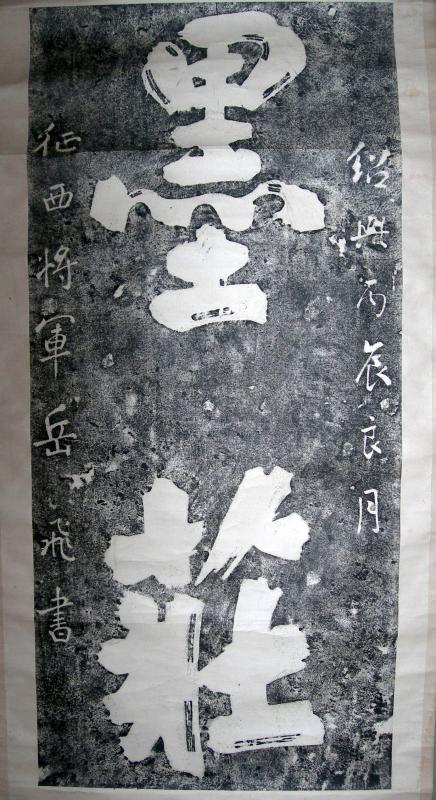 紹興丙辰良月
墨莊
征西將軍岳飛書